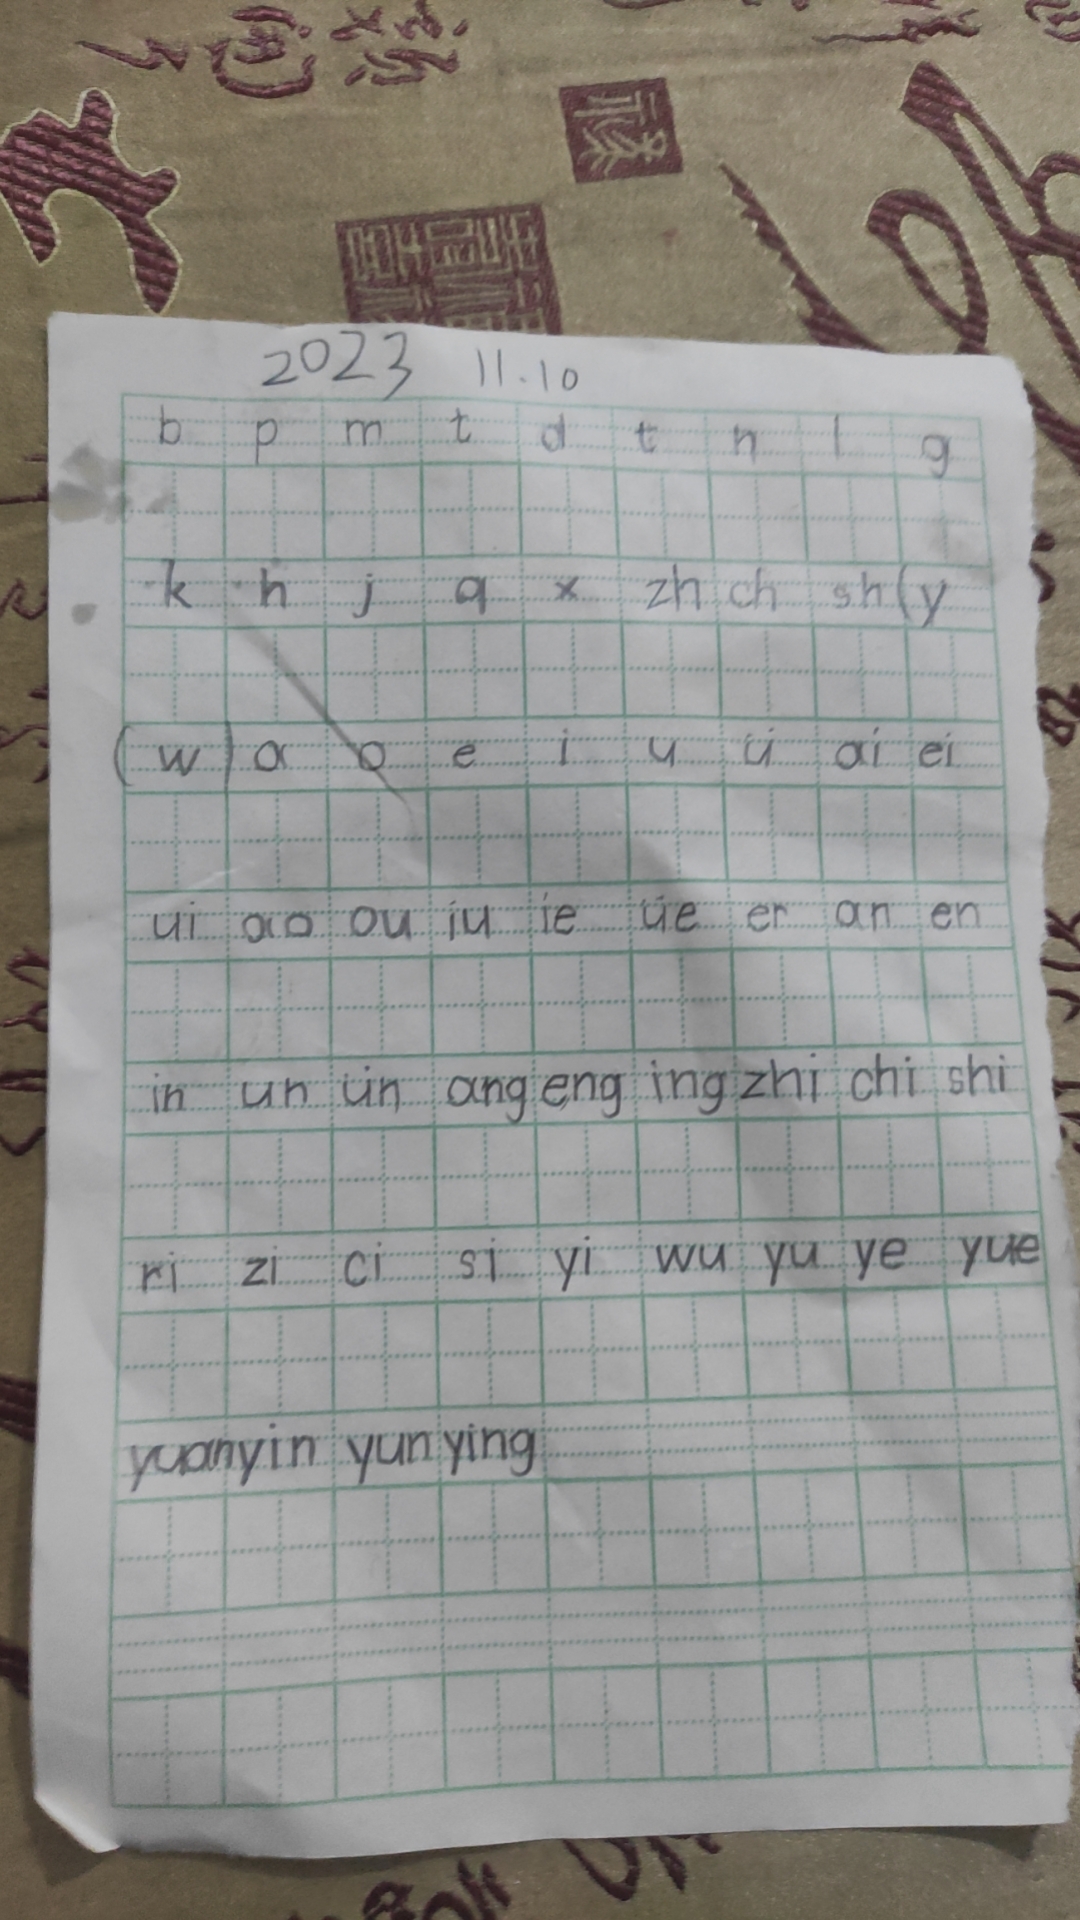 2023 11.10
b p m t d t n l g
k h j q x zh ch sh (y
(w) a o e i u ü ai ei
ui ao ou iu ie üe er an en
in un ün ang eng ing zhi chi shi
ri zi ci si yi wu yu ye yue
yuan yin yun ying